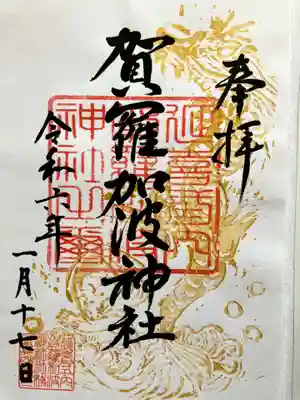 奉拝
賀羅加波神社
令和六年
一月十七日